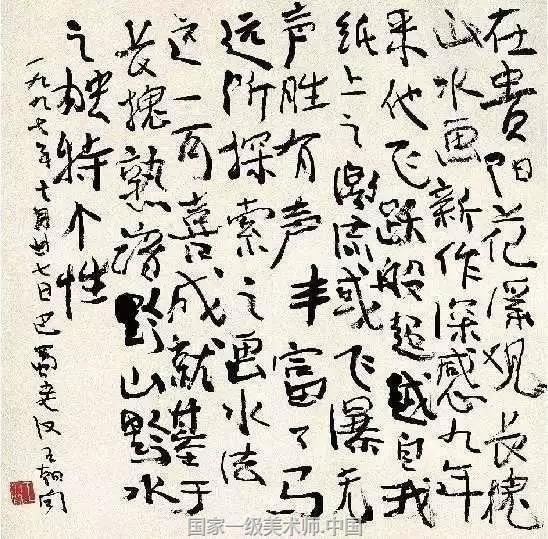 在贵阳花溪观长槐
山水画新作深感九年
来他飞跃般超越自我
纸上之激流或飞瀑无
声胜有声丰富了马
远所探索之画水法
这一可喜成就基于
长槐熟谙黔山黔水
之独特个性
一九九七年十月廿七日巴蜀老汉王朝闻
国家一级美术师.中国